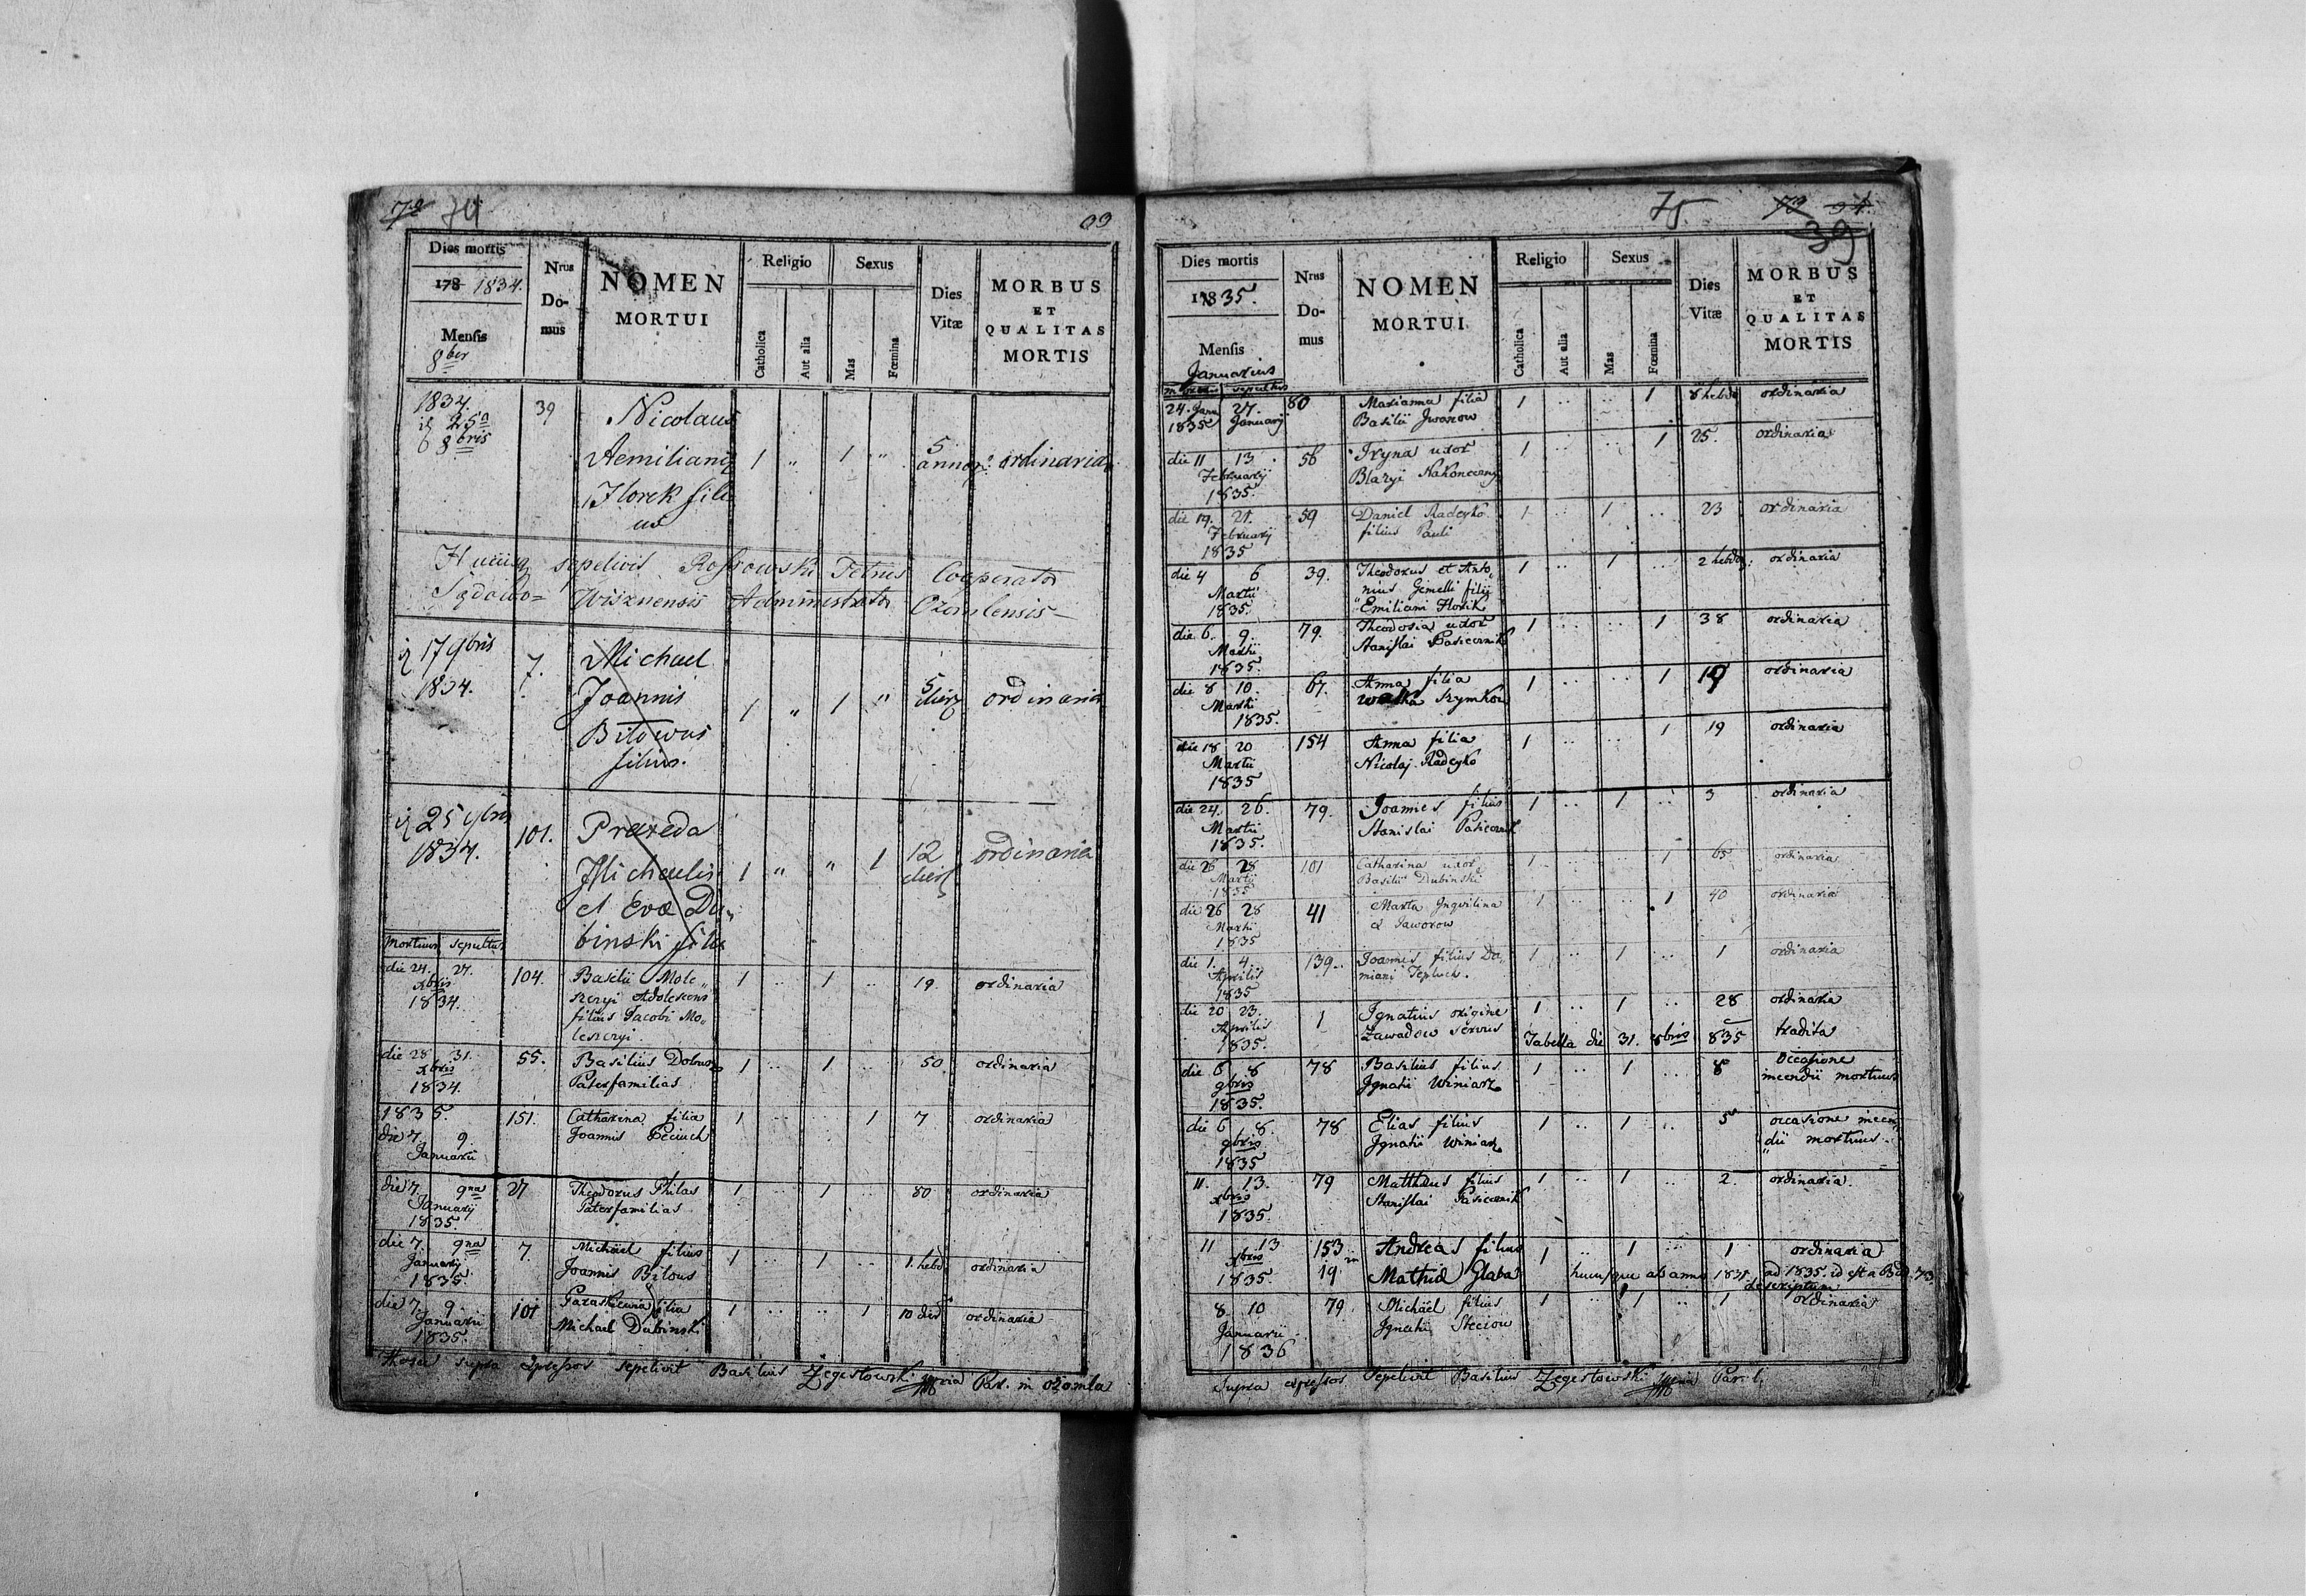 74
Dies mortis
178 1834.
Mensis
8ber
Nrus Do-mus
NOMEN MORTUI
Religio
Catholica
Aut alia
Sexus
Mas
Fœmina
Dies Vitæ
MORBUS ET QUALITAS MORTIS
1834. 39 Nicolaus
25a 8bris Aemiliani 1 " 1 " 5 annor. ordinaria
Horek fili
us
sepelivit Petrus Cooperator
Wisznensis Administrator Ozomlensis
17 9bris 7. Michael
1834. Joannis 1 " 1 " 5 dier ordinaria
Bilowus
filius.
25 9bris 101. Praxeda
1834. Michaelis 1 " " 1 12 dier ordinaria
et Evæ Du
binski filia
mortuus sepultus
die 24. 27. 104. Basilii Mole 1 .. 1 .. 19. ordinaria
xbris szczyi Adolescens
1834. filius Jacobi Mo
leszczyi.
die 28 31. 55. Basilius 1 .. 1 .. 50. ordinaria
xbris Paterfamilias
1834.
1835. 151. Catharina filia 1 .. .. 1 7 ordinaria
die 7. 9. Joannis Peciuch
Januarii
die 7. 9na 27 Theodorus Philas 1 .. 1 .. 80 ordinaria
Januarij Paterfamilias
1835.
die 7. 9na 7. Michael filius 1 .. 1 .. 1. hebd ordinaria
Januarij Joannis Bilous
1835.
die 7. 9. 101 Paraskewia filia 1 .. .. 1 10 die ordinaria
Januarii Michael Dubinski
1835.
supra expressos sepelivit Basilius Zegestowski Par. in Ozomla
75
39
Dies mortis
1835.
Mensis
Januarius
mortuus sepultus
Nrus Do-mus
NOMEN MORTUI
Religio
Catholica
Aut alia
Sexus
Mas
Fœmina
Dies Vitæ
MORBUS ET QUALITAS MORTIS
24. Janu 27. 80 Marianna filia 1 .. .. 1 8 hebdo ordinaria
1835 Januarij Basilii Iwanow
die 11 13 56 Iryna uxor 1 .. .. 1 25. ordinaria
Februarij Blazyi Nakoneczny
1835.
die 19. 21. 59 Daniel Radeyko 1 .. 1 .. 23 ordinaria
Februarij filius Pauli
1835
die 4 6 39. Theodorus et Anto 1 .. 1 .. 2 hebdo: ordinaria
Martii nius Gemelli filii
1835. Emiliani Horik
die 6. 9. 79. Theodosia uxor 1 .. .. 1 38 ordinaria
Martii Stanislai Pasiecznik
1835.
die 8 10. 67. Anna filia 1 .. .. 1 ordinaria
Martii Szymkow
1835.
die 18 20 154 Anna filia 1 .. .. 1 19 ordinaria
Martii Nicolaj Radeyko
1835
die 24. 26. 79. Joannes filius 1 .. 1 .. 3 ordinaria
Martii Stanislai Pasiecznik
1835.
die 26 28 101 Catharina uxor 1 .. .. 1 65 ordinaria
Martii Basilii Dubinski
1835
die 26 28 41 Marta Inquilina 1 .. .. 1 40 ordinaria
Martii Jaworow
1835
die 1. 4. 139. Joannes filius Da 1 .. 1 .. 1 ordinaria
Aprilis miani Tepluch.
1835
die 20 23. 1 Ignatius origine 1 .. 1 .. 28 ordinaria
Aprilis Zawadow servus Tabella die 31. 8bris 835 tradita
1835.
die 6 8 78 Basilius filius 1 .. 1 .. 8 occasione
9bris Ignatii Winiarz incendii mortuus
1835.
die 6 8. 78 Elias filius 1 .. 1 .. 5 occasione incen
9bris Ignatii Winiarz dii mortuus
1835
11. 13. 79 Matthæus filius 1 .. 1 .. 2. ordinaria.
xbris Stanislai Pasiecznik
1835.
11 13 153 Andreas filius 1 .. 1 .. 1 ordinaria
xbris 19. Głaba hucusque ab anno ad 1835. id est a
1835. descriptum
8 10 79. Michael filius 1 .. 1 .. 1 ordinaria
Januarii Ignatii Steciow
1836
Supra expressos Sepelivit Basilius Zegestowski Par.